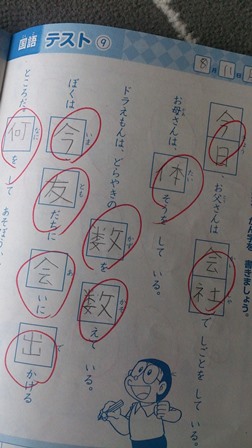 国語 テスト ⑨
8月11日
かん字を 書きましょう。
今日、お父さんは、会社で しごとを して いる。
お母さんは、体そうを して いる。
ドラえもんは、どらやきの 数を 数えて いる。
ぼくは 今 友だちに 会いに 出かける
ところだ。何を して あそぼう。